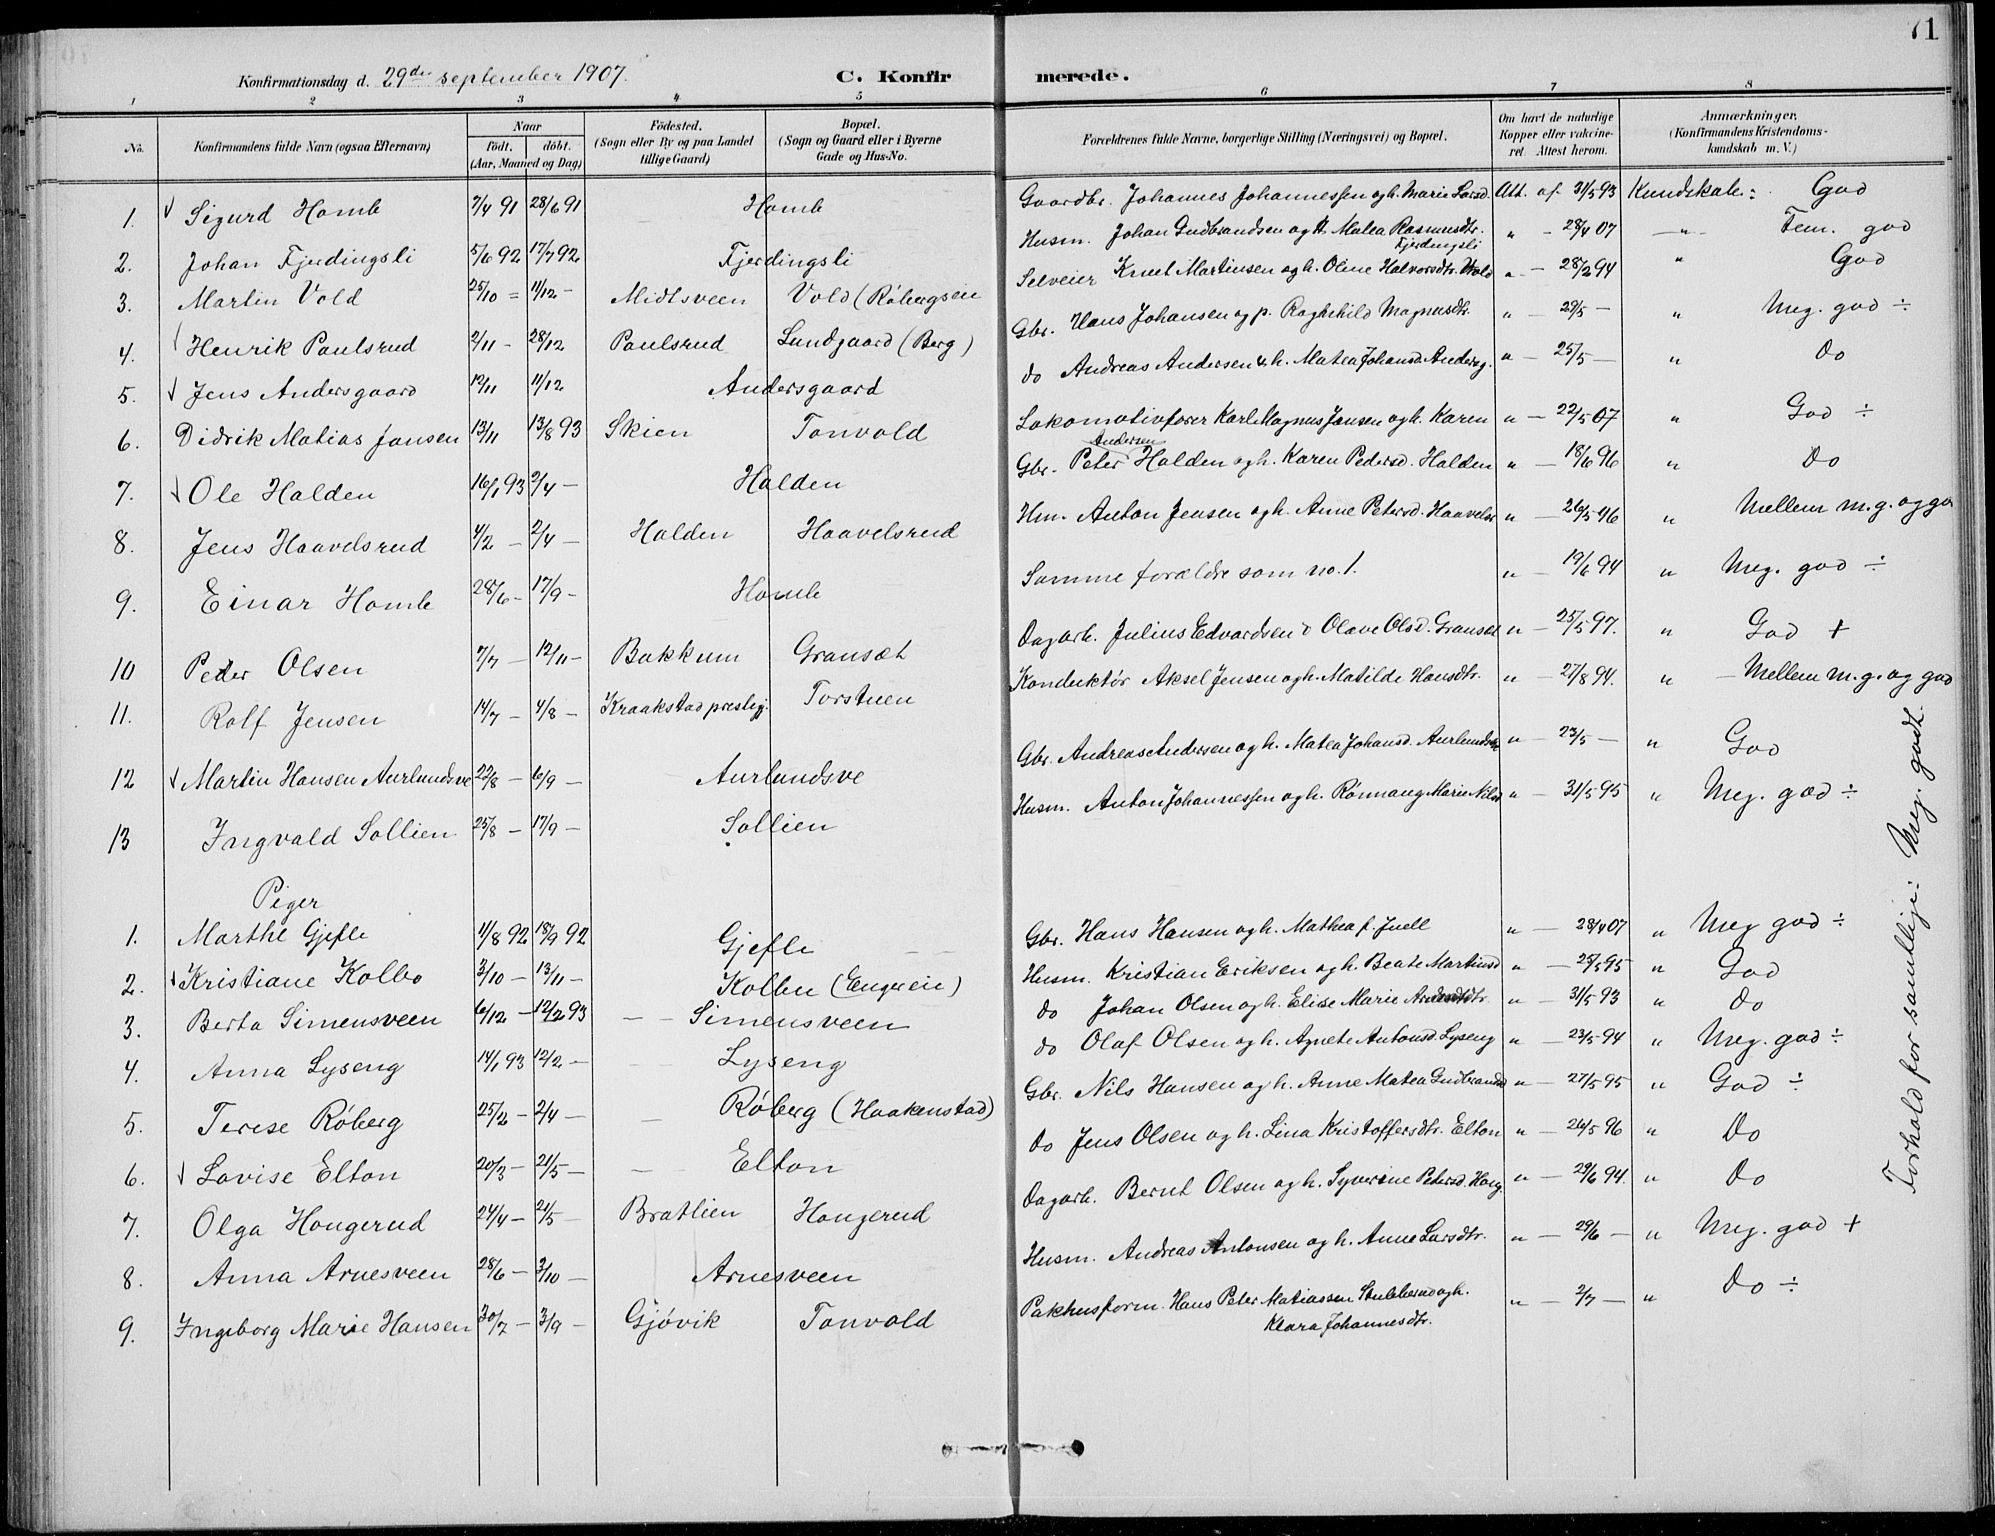 71
Konfirmationsdag d. 29de september 1907. C. Konfirmerede.
1 2 3 4 5 6 7 8
No. Konfirmandens fulde Navn (ogsaa Efternavn) Naar født. døbt. (Aar, Maaned og Dag) Fødested. (Sogn eller By og paa Landet tillige Gaard) Bopæl. (Sogn og Gaard eller i Byerne Gade og Hus-No. Forældrenes fulde Navne, borgerlige Stilling (Næringsvei) og Bopæl. Om havt de naturlige Kopper eller vakcineret. Attest herom. Anmærkninger. (Konfirmandens Kristendomskundskab m. V.)
1. Sigurd Homb 7/4 91 28/6 91 Homb Gaardbr. Johannes Johannessen og h. Marie Larsd. Att. af 31/5 93 Kundskab: God
2. Johan Fjerdingsli 5/6 92 17/7 92 Fjerdingsli Husm. Johan Gudbrandsen og h. Matea Rasmusdtr. Fjerdingsli " - 28/4 07 — " — Tem. god
3. Martin Vold 25/10 = 11/12 - Midtsveen Vold (Røbergseie Selveier Knut Martinsen og h. Oline Halvorsdtr. Vold " - 28/2 94 " God
4. Henrik Paulsrud 2/11 - 28/12 Paulsrud Lundgaard (Berg) Gbr. Hans Johansen og p. Raghild Magnusdtr. " - 29/5 - " Meg. god ÷
5. Jens Andersgaard 12/11 11/12 Andersgaard do Andreas Andersen & h. Matea Johansd. Andersg. " - 25/5 — " Do
6. Didrik Matias Jansen 13/11 13/8 93 Skien Tonvold Lokomotivfører Karl Magnus Jansen og h. Karen " - 22/5 07 " God ÷
7. Ole Halden 16/1 93 2/4 - Halden Gbr. Peter Andersen Halden og h. Karen Pedersd. Halden " - 18/6 96 " Do
8. Jens Haavelsrud 4/2 - 2/4 - Halden Haavelsrud Hm. Anton Jensen og h. Anne Petersd. Haavelsr " - 26/5 96 " Mellem m.g. og go
9. Einar Homb 28/6 - 17/9 - Homb Samme forældre som no. 1. " - 19/6 94 " Meg. god ÷
10 Peder Olsen 7/7 - 12/11 - Bakkum Gransæt Dagarb. Julius Edvardsen & Olave Olsd. Gransæt " - 25/5 97. " God +
11. Rolf Jensen 14/7 - 4/8 - Kraakstad prestegj. Torstuen Konduktør Aksel Jensen og h. Matilde Hansdtr. " - 27/8 94. " - Mellem m.g. og god
12 Martin Hansen Aurlundsve 22/8 - 6/9 - Aurlundsve Gbr. Andreas Andersen og h. Matea Johansd. Aurlundsv " - 23/5 - " God
13 Ingvald Sollien 25/8 - 17/9 - Sollien Husm. Anton Johannessen og h. Rønnaug Marie Nilsd " - 31/5 95 " Meg. god ÷
Piger
1. Marthe Gjefle 11/8 92 18/9 92 Gjefle Gbr. Hans Hansen og h. Mathea f. Juell " - 28/4 07 " Meg god ÷
2. Kristiane Kolbo 3/10 - 13/11 - Kolbu (Engereie) Husm. Kristian Eriksen og h. Beate Martinsd " - 25/5 95 " God
3. Berta Simensveen 6/12 - 12/2 93 - - Simensveen do Johan Olsen og h. Elise Marie " - 31/5 93 " Do
4. Anna Lyseng 14/1 93 12/2 - Lyseng do Olaf Olsen og h. Agnete Antonsd. Lyseng " - 23/5 94 " Meg. god ÷
5. Terese Røberg 25/2 - 2/4 - Røberg (Haakenstad) Gbr. Nils Hansen og h. Anne Matea Gudbrandsd " - 27/5 95 " God ÷
6. Lovise Elton 20/3 - 21/5 - Elton Do Jens Olsen og h. Lina Kristoffersdtr. Elton " - 26/5 96 " Do
7. Olga Hougerud 24/4 - 21/5 - Bratlien Hougerud Dagarb. Bernt Olsen og h. Syverine Petersd. Houg. " - 29/6 94. " Do
8. Anna Arnesveen 28/6 - 3/10 - Arnesveen Husm. Andreas Antonsen og h. Anne Larsdtr. " - 29/6 - " Meg. god +
9. Ingeborg Marie Hansen 30/7 - 3/9 - Gjøvik Tonvold Pakhusform. Hans Peter Matiassen Stubberud og h. Klara Johannesdtr. " - 2/7 - " Do ÷
Forhold for samtlige: Meg. godt.